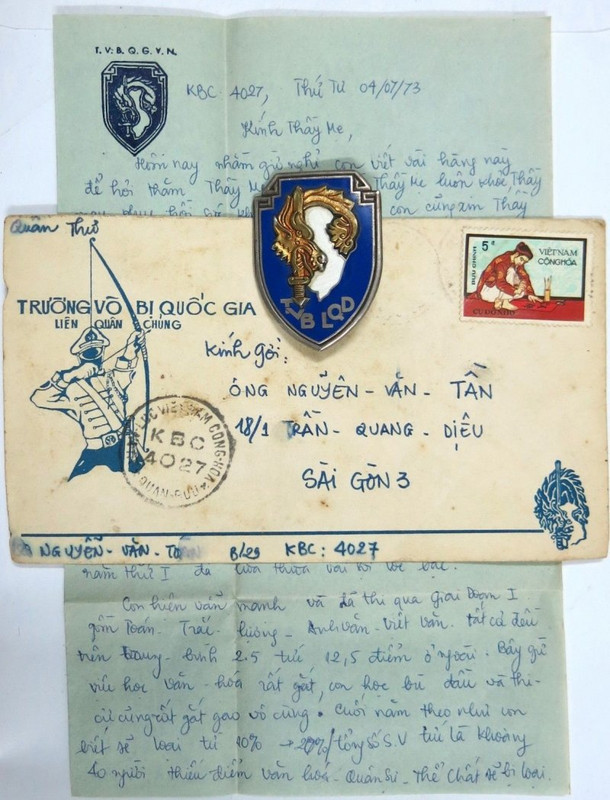 T.V.B.Q.G.V.N.
KBC 4027, Thứ Tư 04/07/73
Kính Thầy Mẹ,
Hôm nay nhằm giờ nghỉ con viết vài hàng này
để hỏi thăm Thầy Mẹ Thầy Mẹ luôn khoẻ, Thầy
con cũng xin Thầy
Quân Thư
TRƯỜNG VÕ BỊ QUỐC GIA
LIÊN QUÂN CHÚNG
TVB LQD
5đ
BƯU CHÍNH
VIỆT NAM
CỘNG HÒA
Kính gởi:
ÔNG NGUYỄN - VĂN - TẤN
18/1 TRẦN - QUANG - DIỆU
SÀI GÒN 3
KBC
4027
QUÂN-BƯU
NGUYỄN - VĂN - KBC: 4027
năm thứ I đã
Con hiện vẫn mạnh và đã thi qua Giai Đoạn I
gồm Toán - Trắc - lượng - Anh văn - Việt văn. Tất cả đều
trên trung - bình 2.5 tức 12,5 điểm ở ngoài. Bây giờ
việc học văn - hóa rất gắt, con học bù đầu và thi -
cử cũng rất gắt gao vô cùng. Cuối năm theo như con
biết sẽ loại từ 10% → 20%/tổng số S.V tức là khoảng
40 người thiếu điểm văn hoá - Quân Sự - Thể Chất sẽ bị loại.